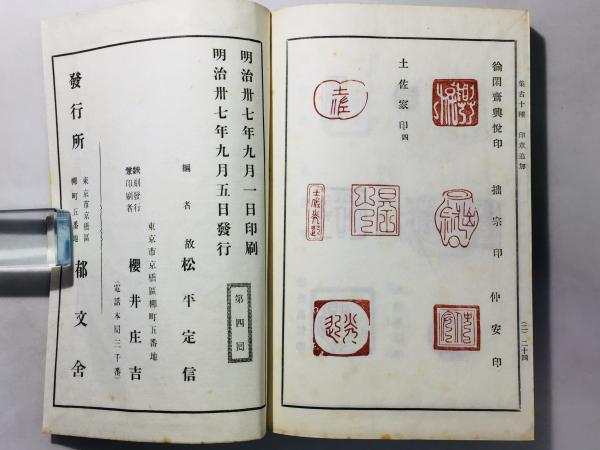 集古十種 印章追加
(二)二十四
徐閑齋興悅印
拙宗印
仲安印
土佐家印 四
明治卅七年九月一日印刷
明治卅七年九月五日發行
第四回
編者 故松平定信
東京市京橋區柳町五番地
發行
印刷者
櫻井庄吉
(電話本局三千番)
東京市京橋區
柳町五番地
發行所 郁文舍